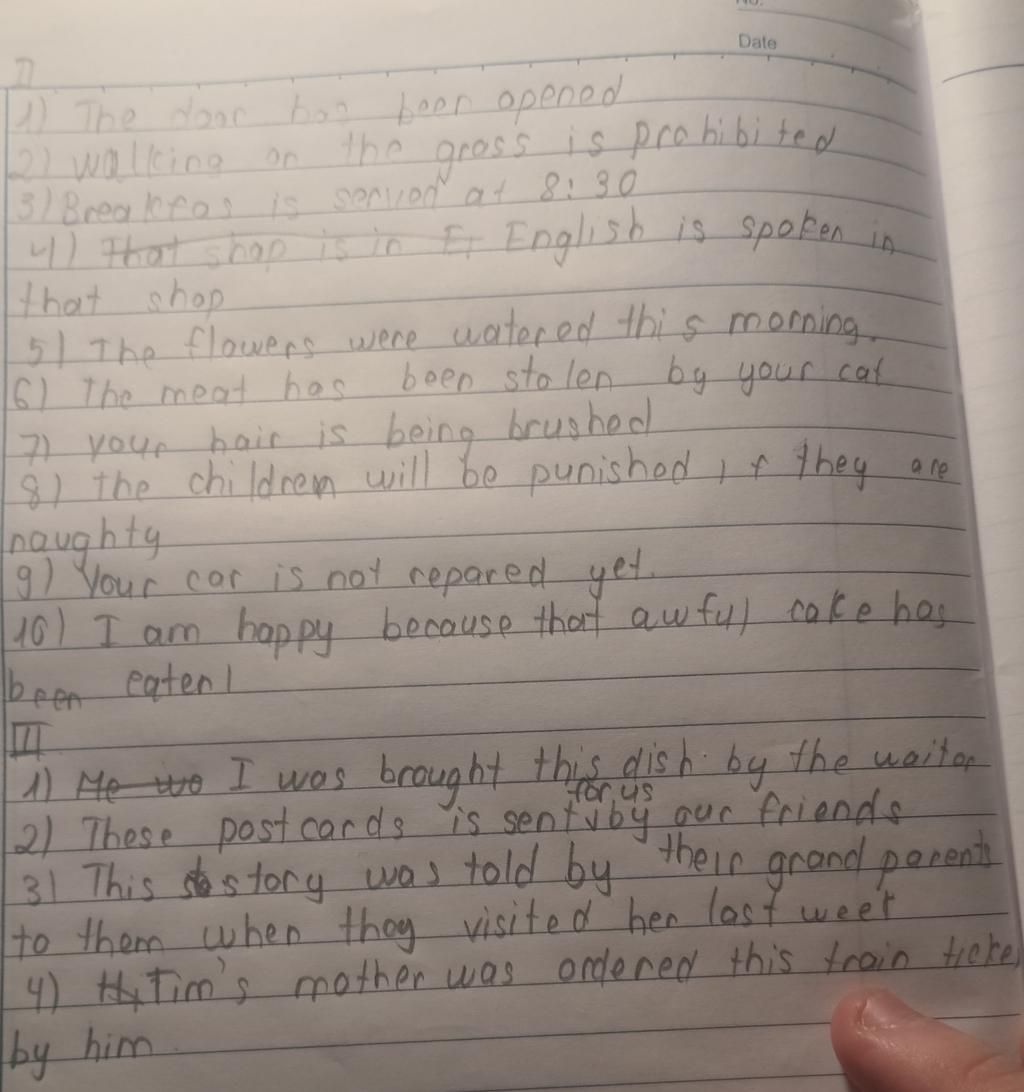 No.
Date
II
1) The door has been opened
2) walking on the grass is prohibited
3) Breakfas is served at 8:30
4) That shop is in E English is spoken in
that shop
5) The flowers were watered this morning.
6) The meat has been stolen by your cat
7) your hair is being brushed
8) the children will be punished if they are
naughty
9) Your car is not repared yet.
10) I am happy because that awful cake has
been eaten!
III
1) He wo I was brought this dish by the waiter
for us
2) These postcards is sent by our friends
3) This story was told by their grand parents
to them when they visited her last week
4) Tim's mother was ordered this train ticke
by him.